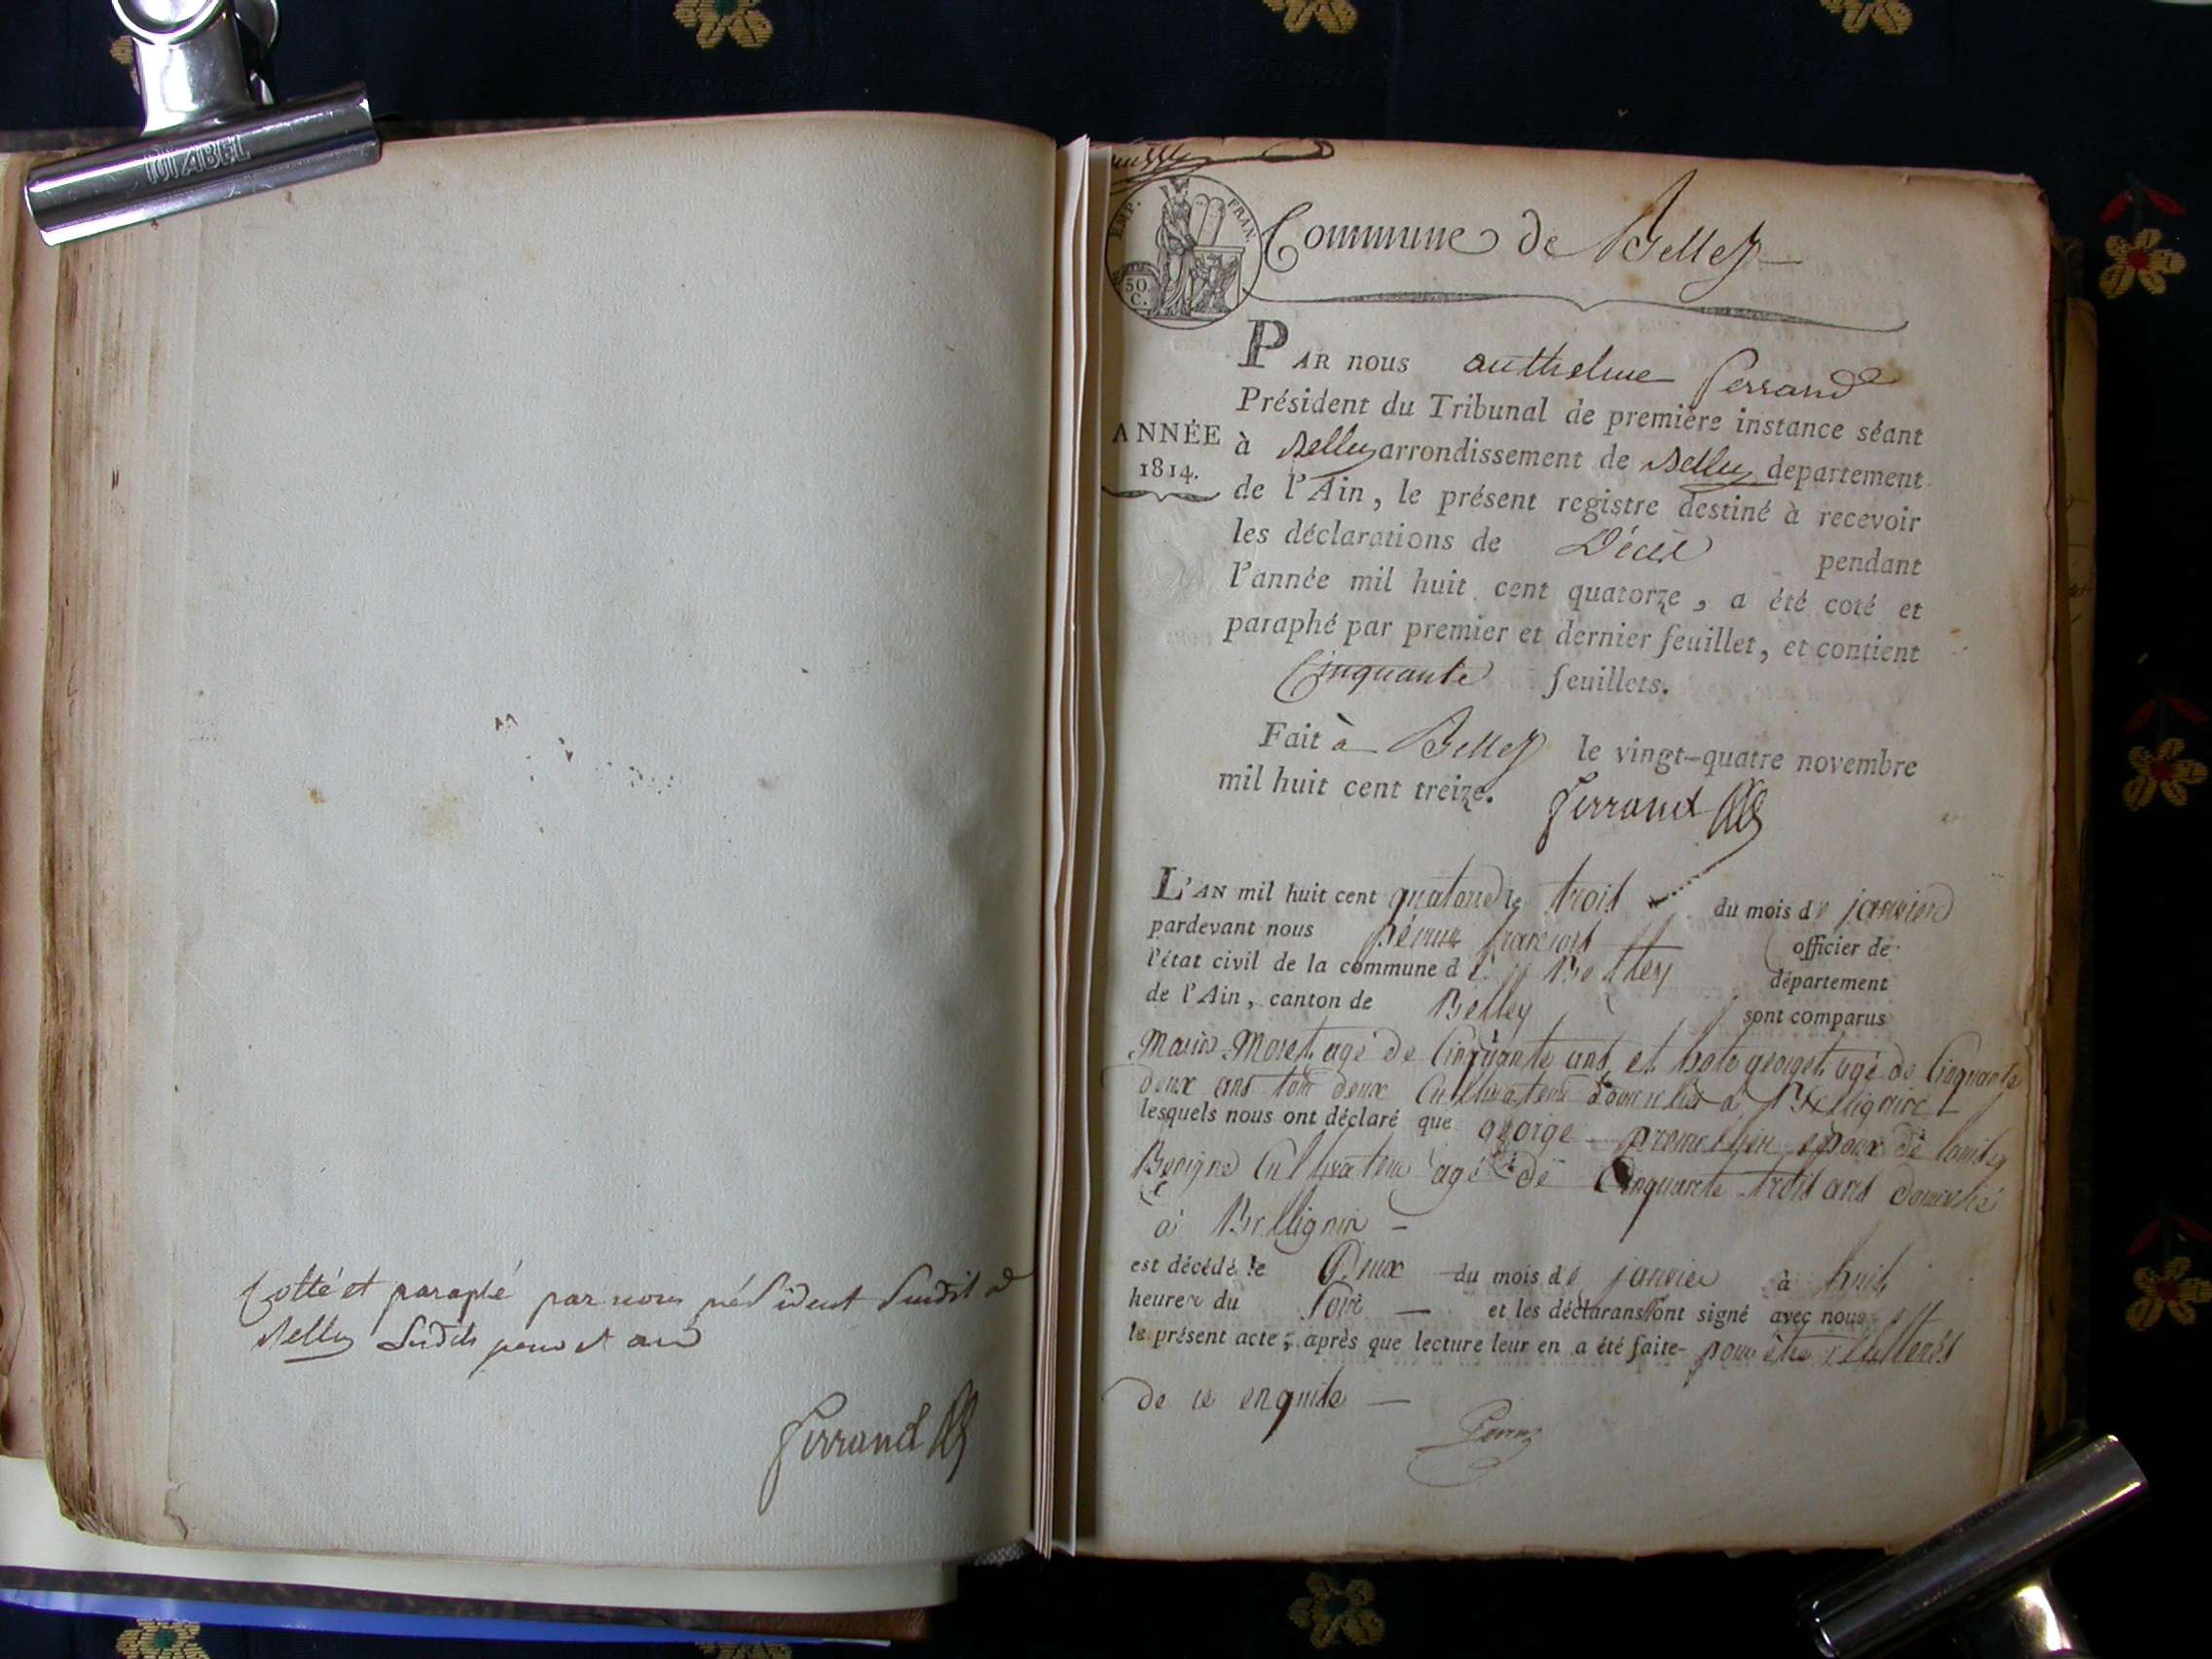 Cotté et paraphé par nous président susdit à
Belley susdits jour et an
Ferrand
EMP. FRAN.
50.
C.
Commune de Belley
PAR nous anthelme ferrand
Président du Tribunal de première instance séant
ANNÉE
1814.
à Belley arrondissement de Belley departement
de l'Ain, le présent registre destiné à recevoir
les déclarations de Décès pendant
l'année mil huit cent quatorze, a été coté et
paraphé par premier et dernier feuillet, et contient
Cinquante feuillets.
Fait à Belley le vingt-quatre novembre
mil huit cent treize. ferrand
L'AN mil huit cent quatorze le trois du mois de janvier
pardevant nous françois officier de
l'état civil de la commune de Belley département
de l'Ain, canton de Belley sont comparus
Marin Moret agé de Cinquante ans et georget agé de Cinquante
deux ans tous deux Cultivateurs domiciliés a
lesquels nous ont déclaré que george epoux de
Benigne Cultivateur agé de Cinquante trois ans domicilié
à Bellignin
est décédé le Deux du mois de janvier à huit
heures du soir et les déclarans ont signé avec nous
le présent acte, après que lecture leur en a été faite pour être illitterés
de ce enquits
RITABEL